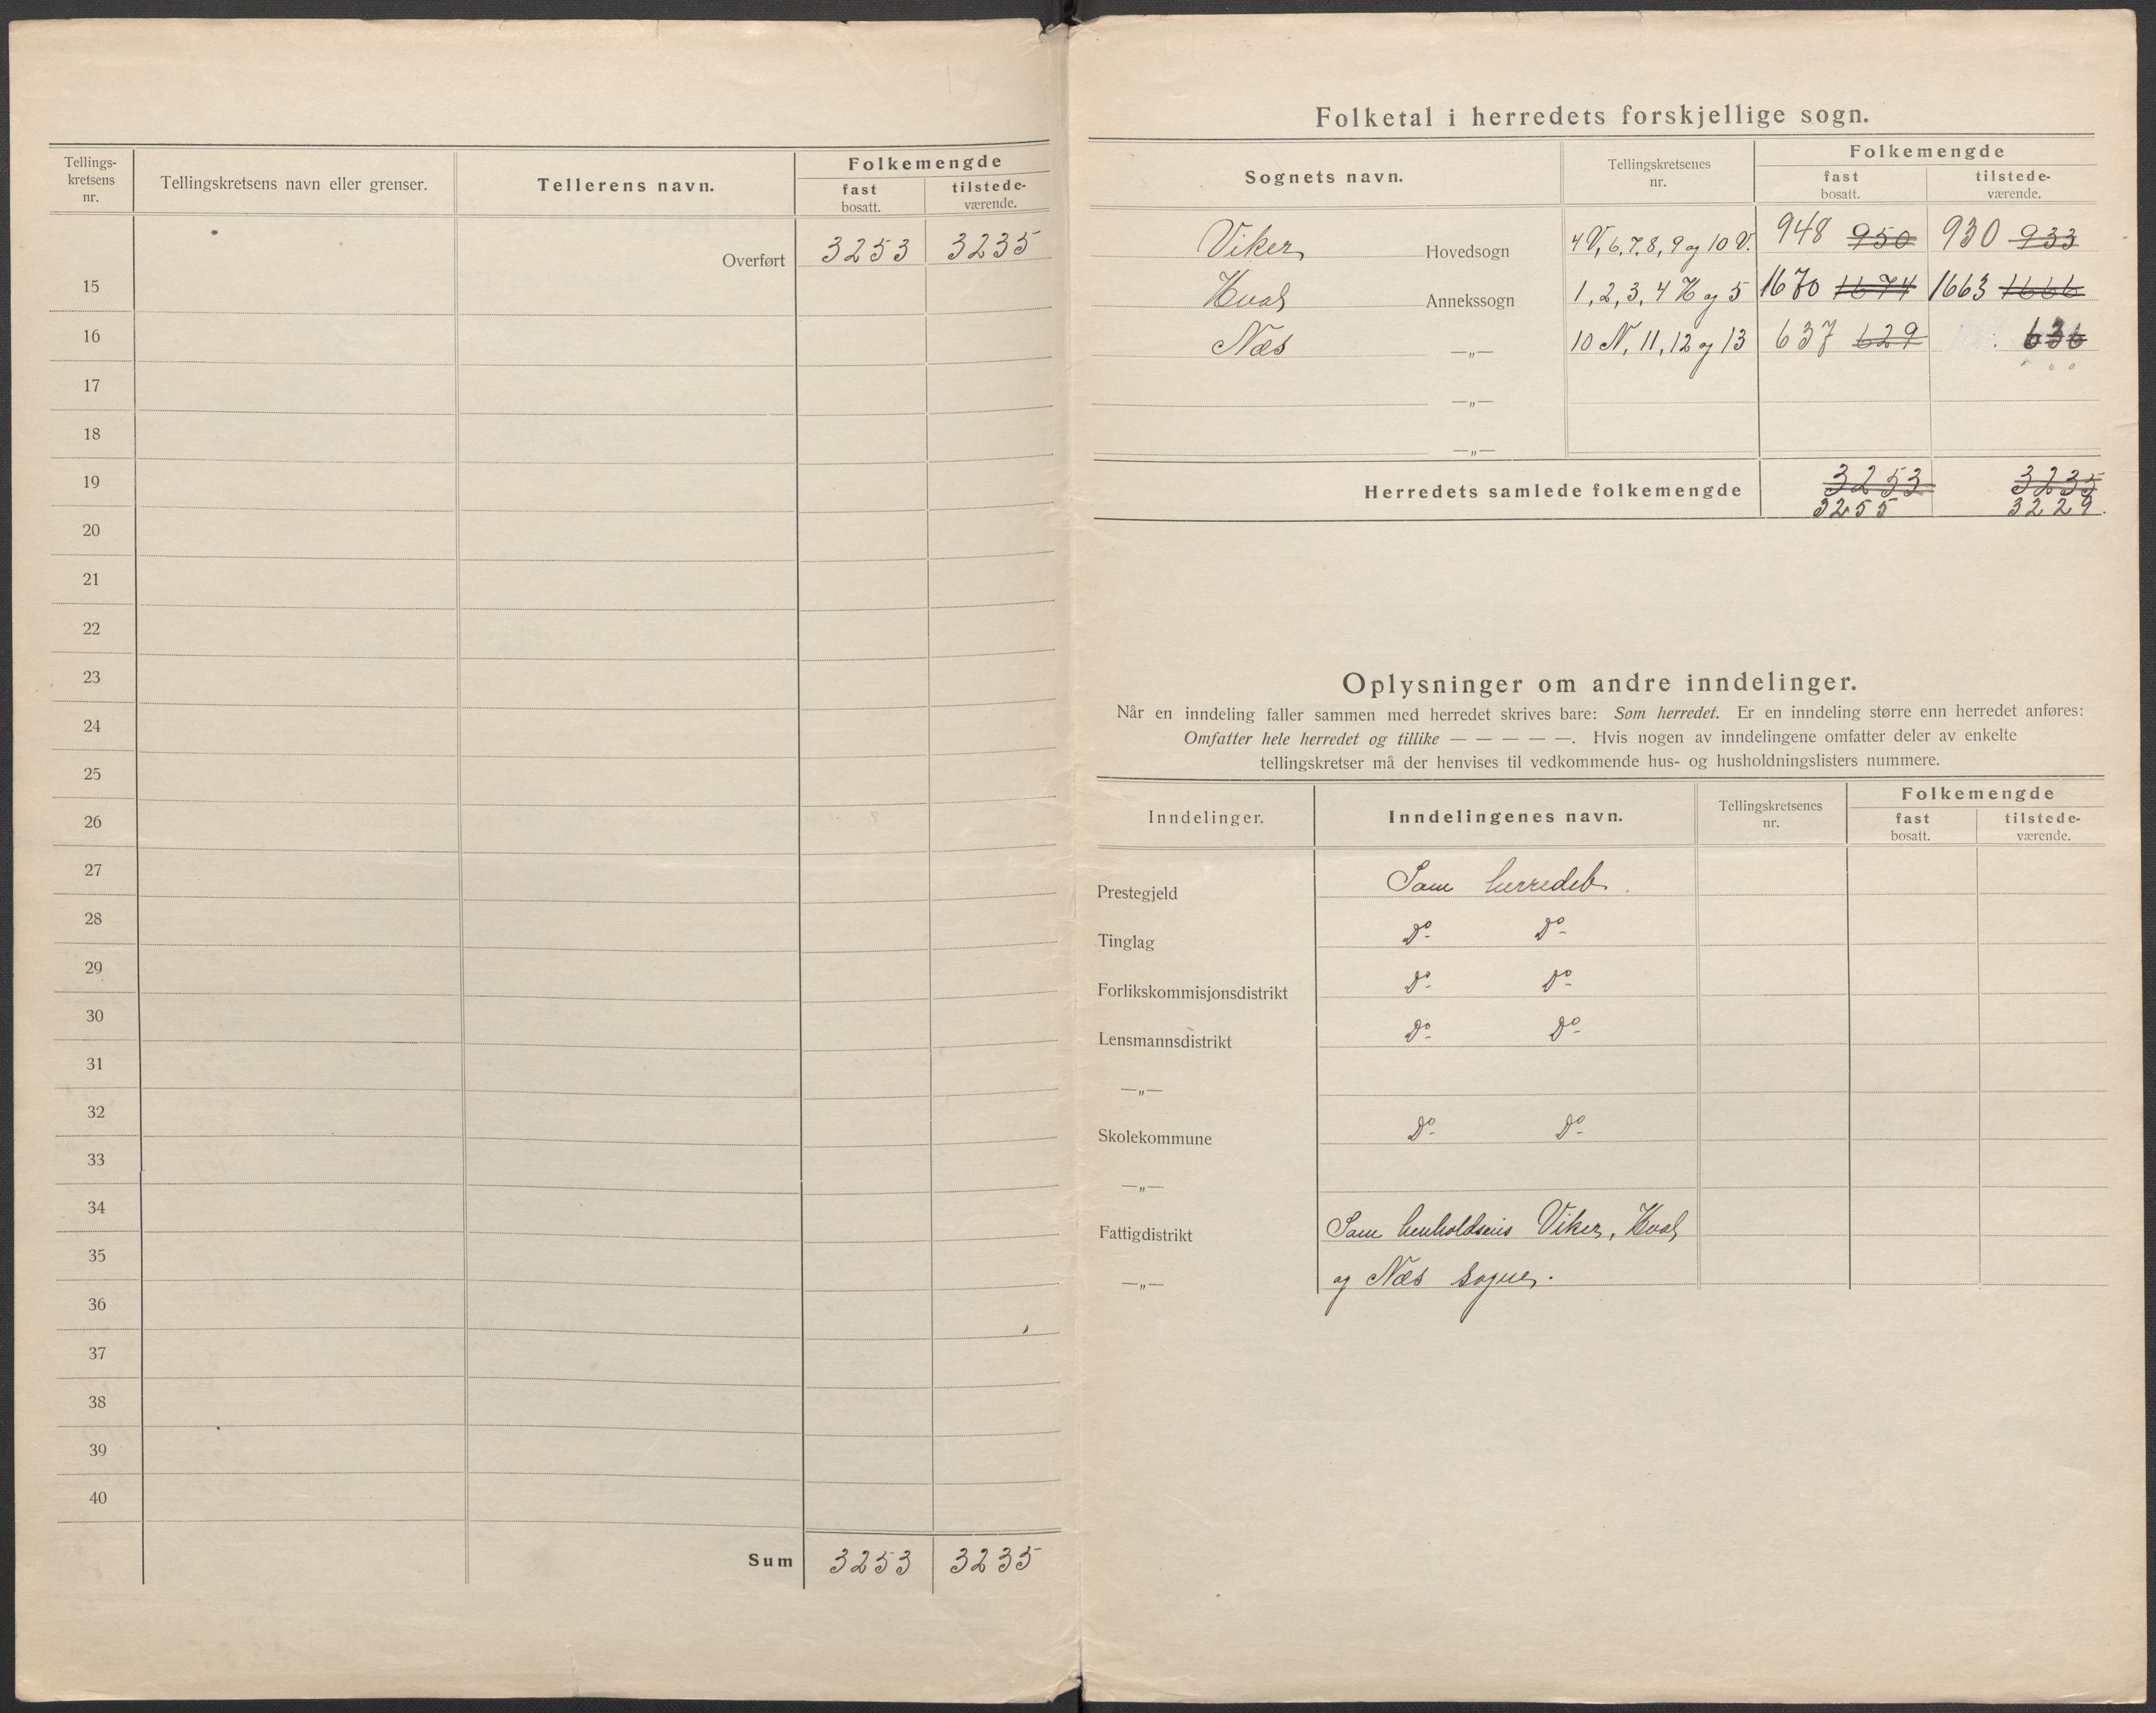 Tellings-
kretsens
nr.
Tellingskretsens navn eller grenser.
Tellerens navn.
Folkemengde
fast
bosatt.
tilstede-
værende.
Overført 3253 3235
15
16
17
18
19
20
21
22
23
24
25
26
27
28
29
30
31
32
33
34
35
36
37
38
39
40
Sum 3253 3235
Folketal i herredets forskjellige sogn.
Sognets navn.
Tellingskretsenes
nr.
Folkemengde
fast
bosatt.
tilstede-
værende.
Viker Hovedsogn 4 V, 6, 7, 8, 9 og 10 V. 948 950 930 933
Hval Annekssogn 1, 2, 3, 4 H og 5 1670 1674 1663 1666
Næs —„— 10 N, 11, 12 og 13 637 629 636
—„—
—„—
Herredets samlede folkemengde 3253 3235
3255 3229.
Oplysninger om andre inndelinger.
Når en inndeling faller sammen med herredet skrives bare: Som herredet. Er en inndeling større enn herredet anføres:
Omfatter hele herredet og tillike — — — — —. Hvis nogen av inndelingene omfatter deler av enkelte
tellingskretser må der henvises til vedkommende hus- og husholdningslisters nummere.
Inndelinger.
Inndelingenes navn.
Tellingskretsenes
nr.
Folkemengde
fast
bosatt.
tilstede-
værende.
Prestegjeld Som herredet.
Tinglag Do Do
Forlikskommisjonsdistrikt Do Do
Lensmannsdistrikt Do Do
—„—
Skolekommune Do Do
—„—
Fattigdistrikt Som henholdsvis Viker, Hval
—„— og Næs sogner.